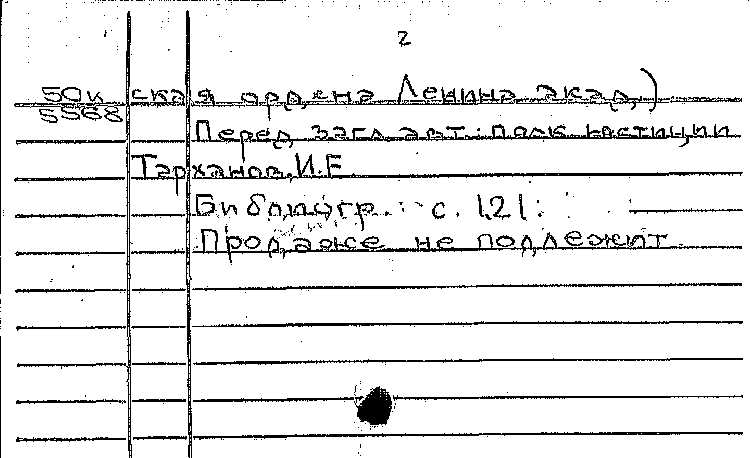 2
50к ская ордена Ленина акад.)
5568
Перед загл. авт.: полк. юстиции
Тарханов, И.Е.
Библиогр.: с. 121.
Продаже не подлежит.